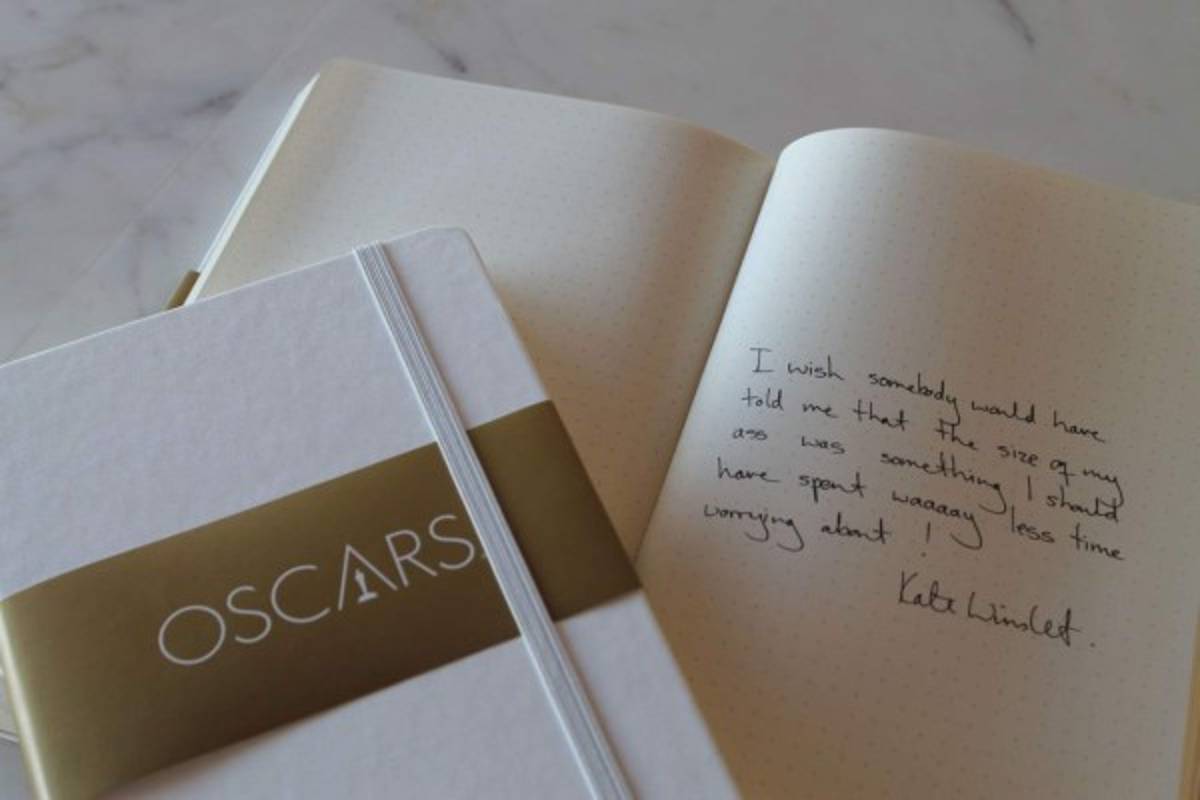 OSCARS
I wish somebody would have
told me that the size of my
ass was something I should
have spent waaaay less time
worrying about !
Kate Winslet.